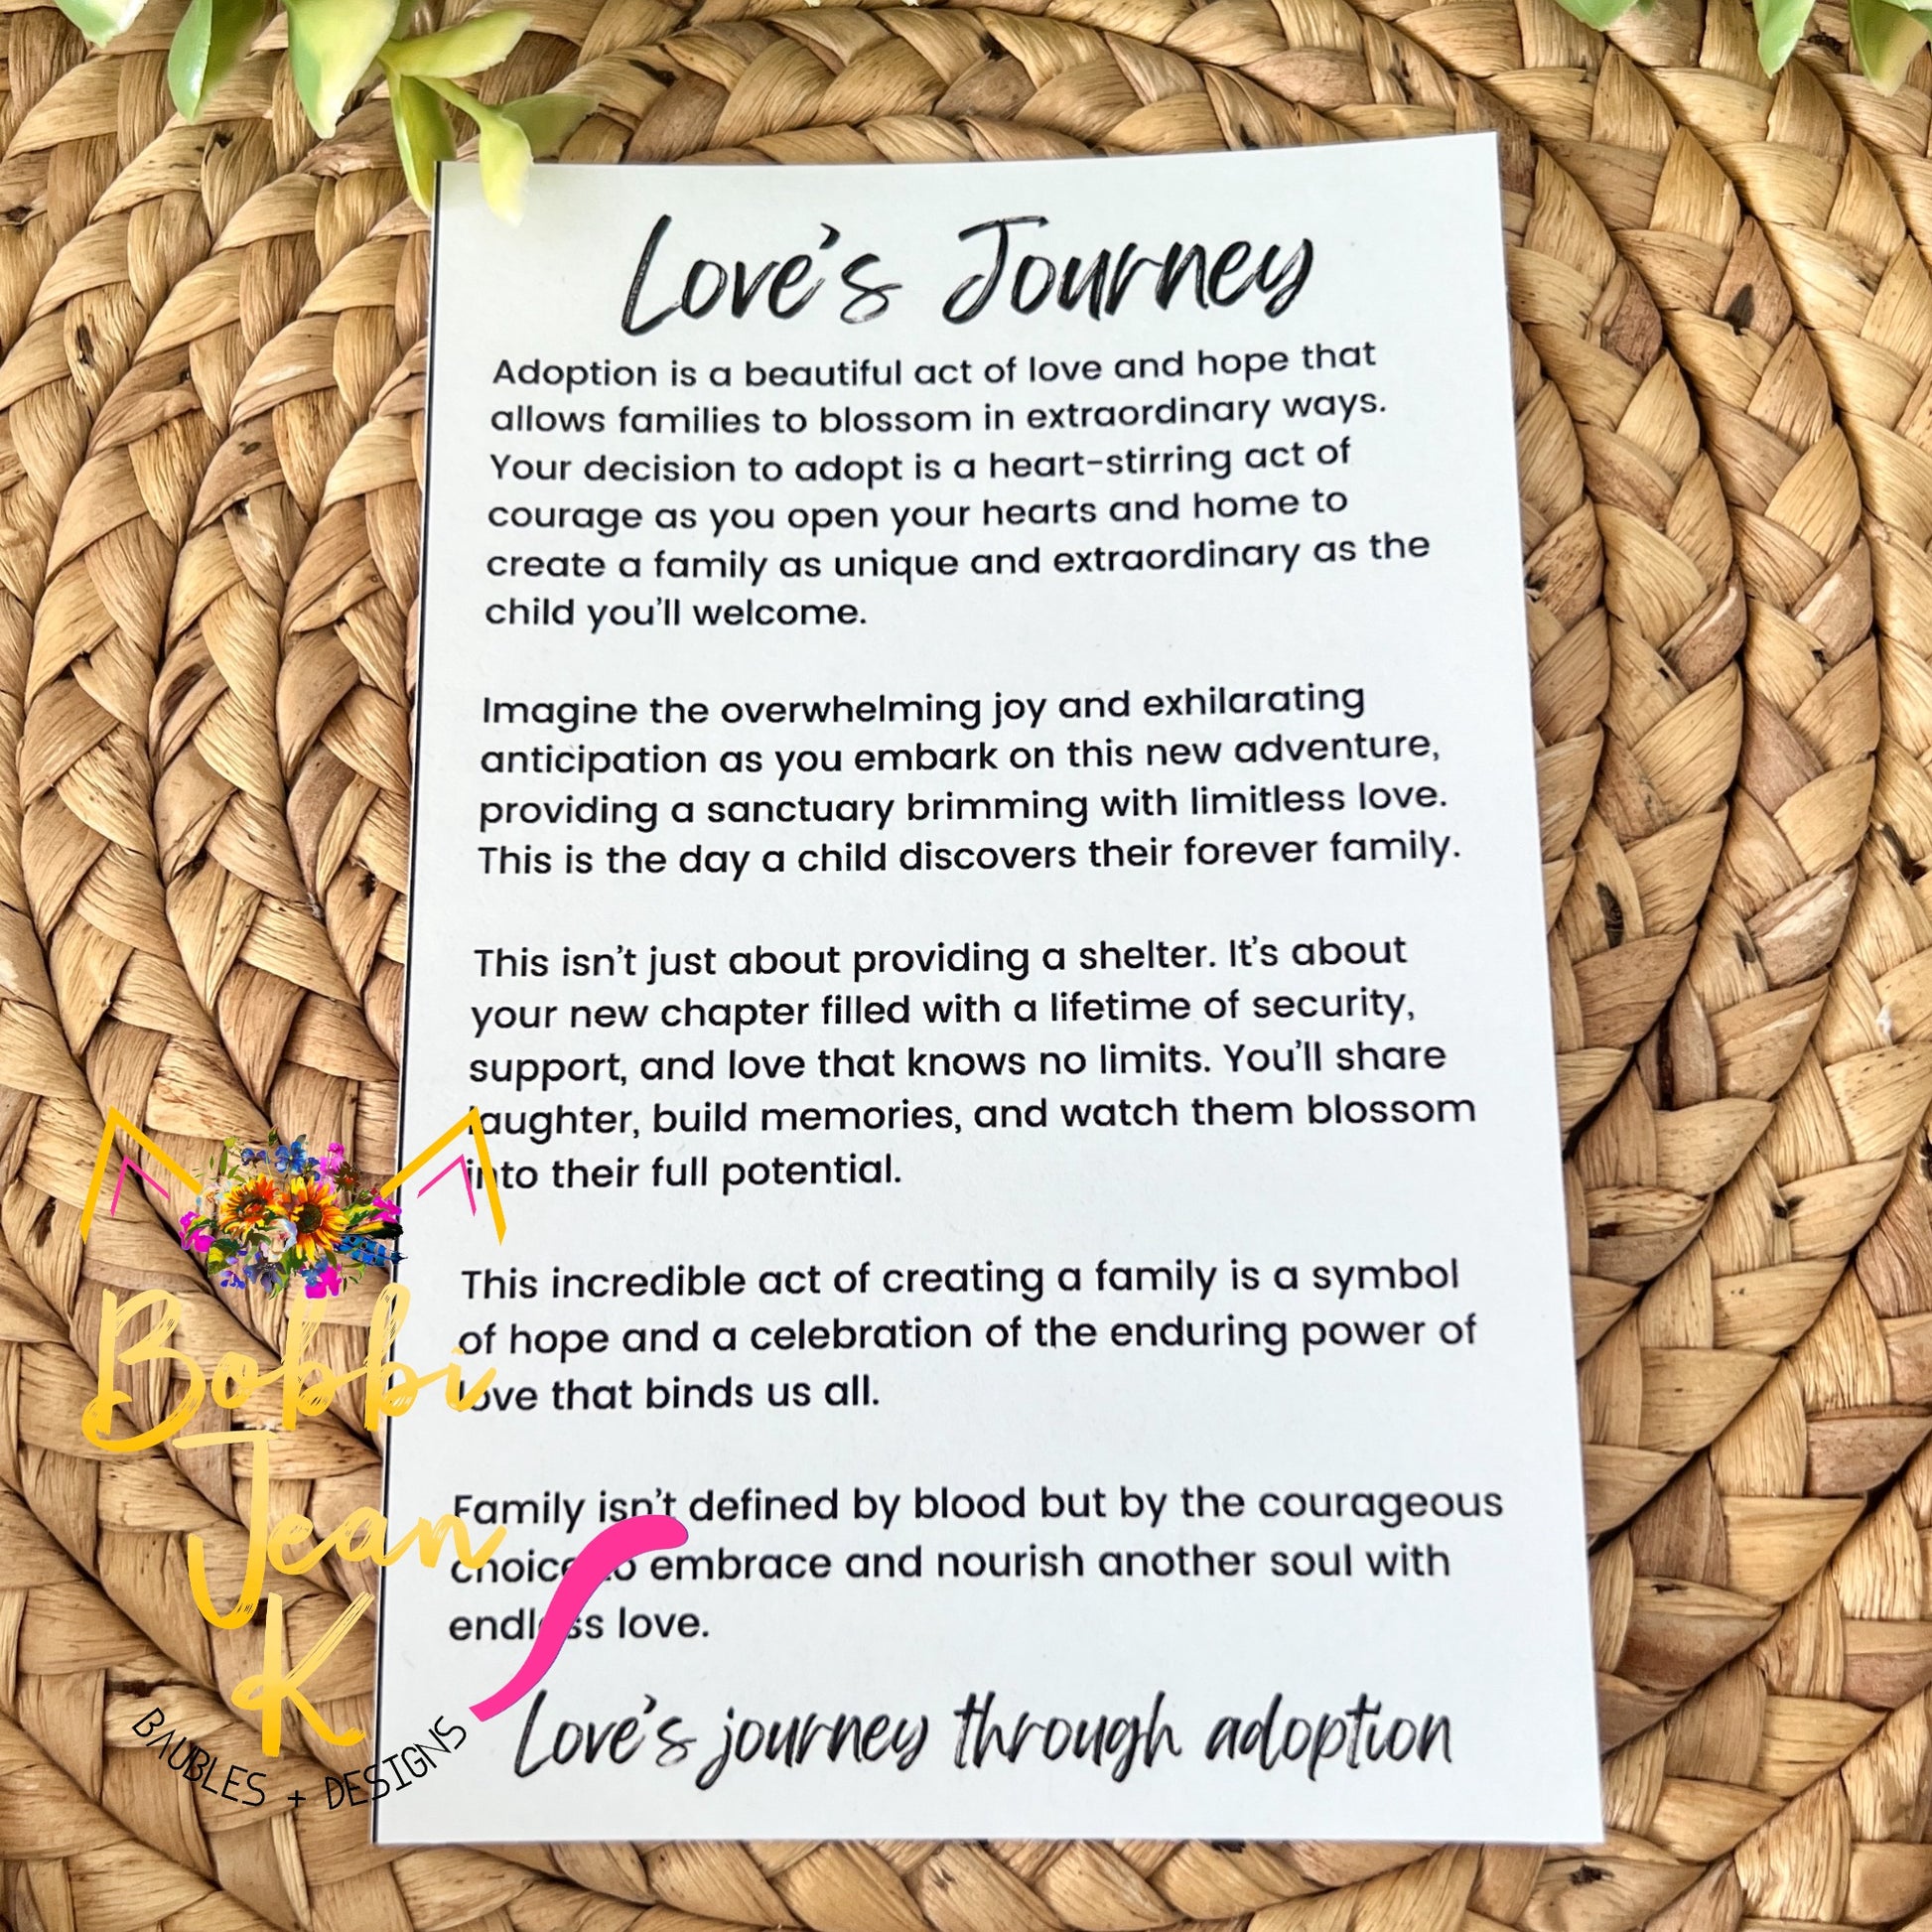 Love's Journey
Adoption is a beautiful act of love and hope that
allows families to blossom in extraordinary ways.
Your decision to adopt is a heart-stirring act of
courage as you open your hearts and home to
create a family as unique and extraordinary as the
child you'll welcome.
Imagine the overwhelming joy and exhilarating
anticipation as you embark on this new adventure,
providing a sanctuary brimming with limitless love.
This is the day a child discovers their forever family.
This isn't just about providing a shelter. It's about
your new chapter filled with a lifetime of security,
support, and love that knows no limits. You'll share
laughter, build memories, and watch them blossom
into their full potential.
This incredible act of creating a family is a symbol
of hope and a celebration of the enduring power of
love that binds us all.
Family isn't defined by blood but by the courageous
choice to embrace and nourish another soul with
endless love.
Love's journey through adoption
Bobbi
Jean
K
BAUBLES + DESIGNS